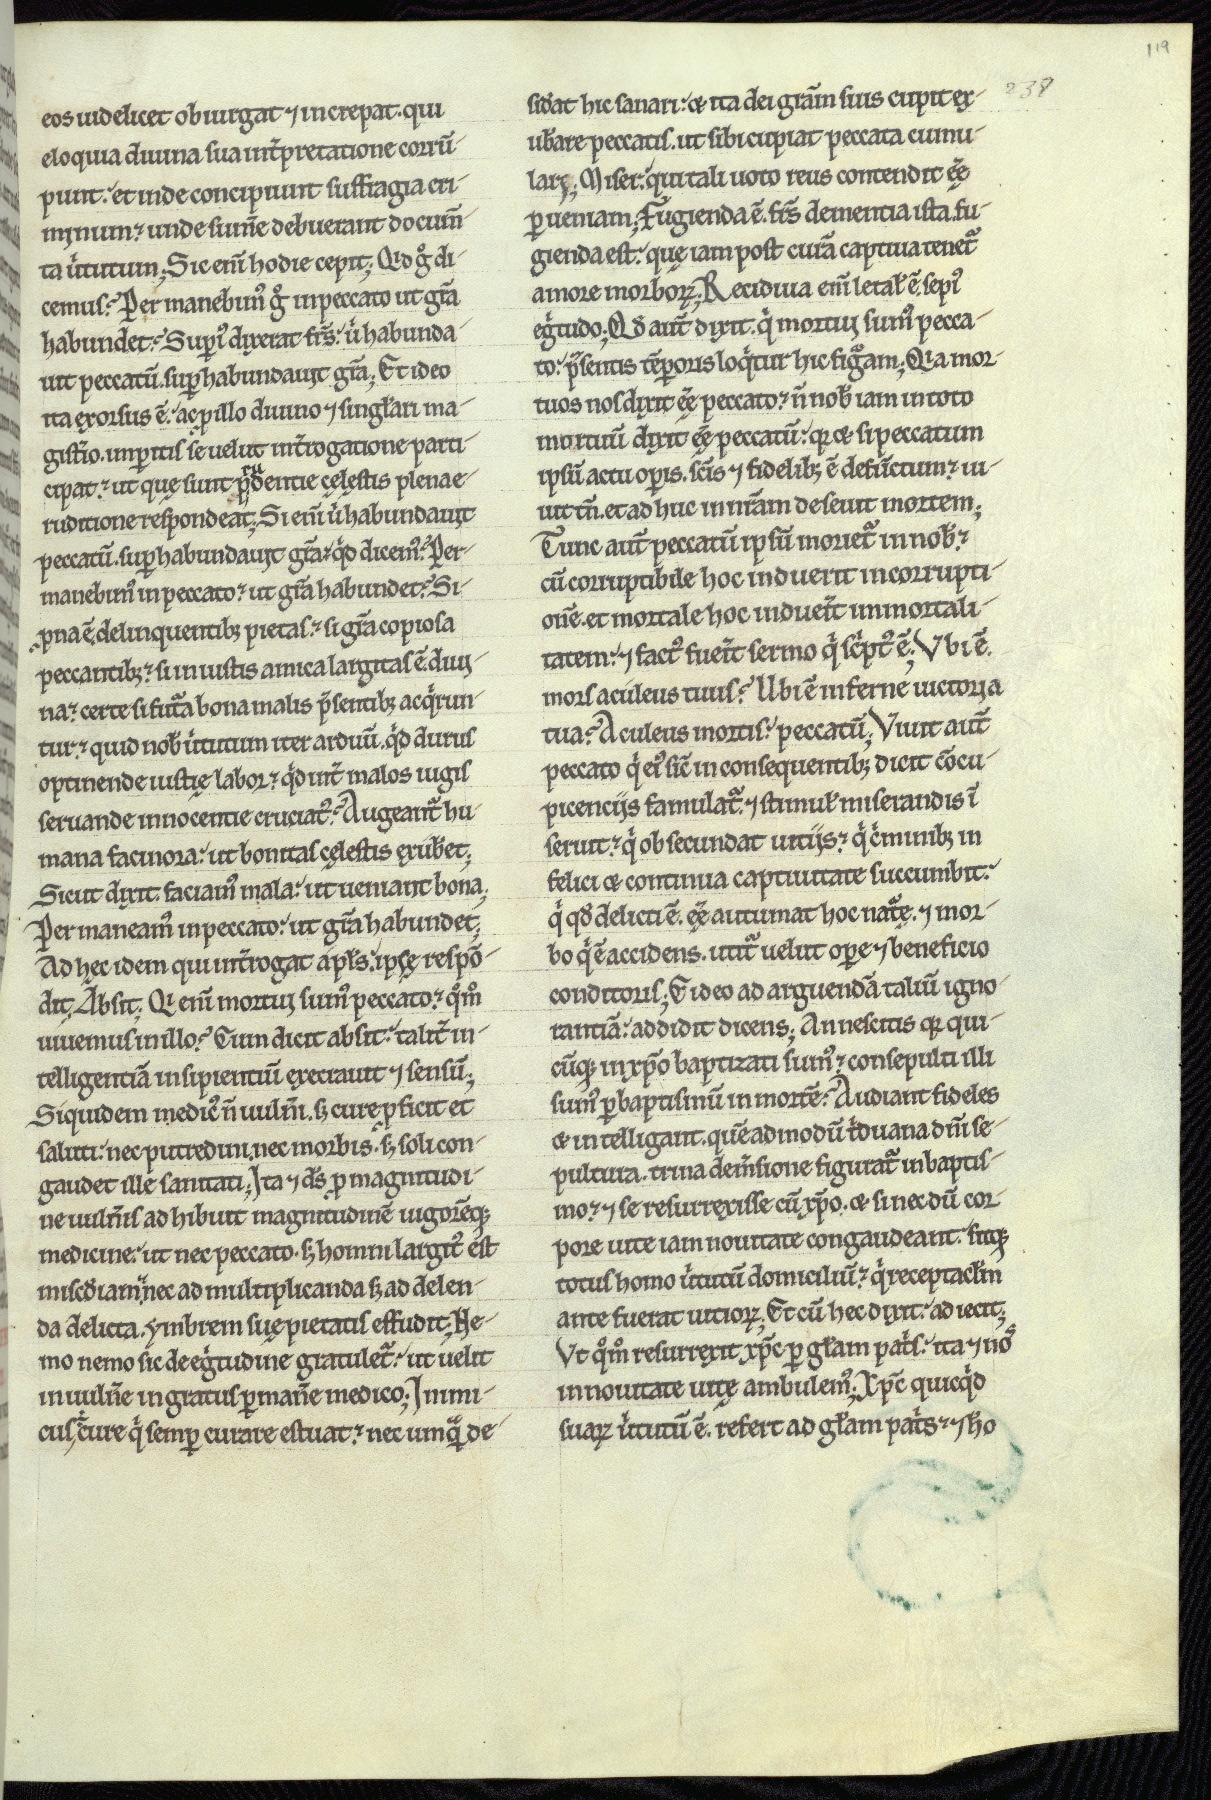 119
238
eos uidelicet obiurgat ⁊ increpat. qui
eloquia diuina sua int̄pretatione corrū-
piunt. et inde concipiunt suffragia cri-
minum? unde sum̄e debuerant docum̄
ta ùtutum; Sic eni̅ hodie cepit; Qd g̊ di-
cemus? Permanebim᷒ g̊ in peccato ut gr̄a
habundet? Superi᷒ dixerat fr̄s. ù habunda
uit peccatū. suꝑhabundauit gr̄a; Et ideo
ita exorsus ē. ac pillo diuino ⁊ singłari ma-
gist̄io. inꝑitis se uelut int̄rogatione parti-
cipat? ut quę sunt prudentie cęlęstis plena e-
ruditione respondeat; Si eni̅ ù habundauit
peccatū. suꝑhabundauit gr̄a? qd dicem᷒? Per-
manebim᷒ in peccato? ut gr̄a habundet? Si
pna ē delinquentibꝫ pietas? si gr̄a copiosa
peccantibꝫ? si iniustis amica largitas ē diui-
na? certe si futa bona malis p̄sentibꝫ acqrun
tur? quid nob̄ ùtutum iter arduū. qd durus
optinende iustię labor? qd int̄ malos iugis
seruande innocentie cruciat᷒? Augeant hu-
mana facinora. ut bonitas cęlestis exub̄et;
Sicut dixit. faciam᷒ mala. ut ueniant bona;
Permaneam᷒ in peccato. ut gr̄a habundet;
Ad hęc idem qui int̄rogat apłs. ipse respō-
dit; Absit; Qi eni̅ mortui sum᷒ peccato? qm̊
uiuemus in illo? Cum dicit absit. talit̄ in-
telligentiā insipientiū execrauit ⁊ sensū;
Siquidem medic᷒ n̄ uuln̄i. sꝫ curę ꝓficit et
saluti. nec putredini, nec morbis. sꝫ soli con-
gaudet ille sanitati; Ita ⁊ ds̄ ꝓ magnitudi-
ne uuln̄is adhibuit magnitudinē uigorēqꝫ
medicine. ut nec peccato. sꝫ homini largit᷒ est
misc̄diam. nec ad multiplicanda sꝫ ad delen-
da delicta. ymbrem suę pietatis effudit; Ne-
mo nemo sic de eg̊tudine gratulet̄. ut uelit
in uuln̄e ingratus ꝑman̄e medico; Inimi-
cus cure q̇ semꝑ curare estuat? nec umq̄ de-
sid̄at hic sanari. & ita dei gr̄am suis cupit ex-
ub̄are peccatis. ut sibi cupiat peccata cumu-
larę; Miser. qui tali uoto reus contendit ee̅
ꝑueniam; Fugienda ē. fr̄s dementia ista. fu-
gienda est. quę iam post curā captiua tenet̄
amore morboꝝ; Recidiua eni̅ letał ē. sepi᷒
eg̊tudo; Qd aut̄ dixit. q̇ mortui sum᷒ pecca-
to. p̄sentis tēporis loqtur hic figr̄am; Qia mor-
tuos nos dixit ee̅ peccato? n̄ nob̄ iam in toto
mortuū dixit ee̅ peccatū. qꝛ & si peccatum
ipsū actu opis. sc̄is ⁊ fidelibꝫ ē defūctum? ui-
uit tn̄. et adhuc in nr̄am deseuit mortem;
Tunc aut̄ peccatū ipsū moriet̄ in nob̄?
cū corruptibile hoc induerit incorrupti-
onē. et mortale hoc induerit̄ immortali-
tatem. ⁊ fact᷒ fuer̄it sermo q̇ sc̄pt᷒ ē; Vbi ē
mors aculeus tuus? Ubi ē inferne uictoria
tua? Aculeus mortis. peccatū; Viuit aut̄
peccato q̇ ei᷒ sic̄ in consequentibꝫ dicit cōcu-
picencijs famulat̄. ⁊ stimuł miserandis in̄
seruit? q̇ obsecundat uitijs? q̇ c̊minibꝫ in
felici & continua captiuitate succumbit.
q̇ qd delicti ē. ee̅ autumat hoc natę. ⁊ mor-
bo q̇ ē accidens. utit̄ uelut ope ⁊ beneficio
conditoris; Et ideo ad arguendā taliū igno-
rantiā. addidit dicens; An nescitis qꝛ qui-
cūqꝫ in xp̄o baptizati sum᷒? consepulti illi
sum᷒ ꝑ baptismū in mortē? Audiant fideles
& intelligant. quēadmodū tduana dn̄i se-
pultura. trina dem̄sione figurat̄ in baptis-
mo? ⁊ se resurrexisse cū xp̄o. & si nec dū cor-
pore uite iam nouitate congaudeant. sitqꝫ
totus homo ùtutū domiciliū? q̇ receptacłm
ante fuerat uitioꝝ; Et cū hec dixit. adiecit;
Vt qm̊ resurrexit xp̄c ꝑ głam pat̄s. ita ⁊ nos
in nouitate uitę ambulem᷒; Xp̄c quicqd
suaꝝ ùtutū ē. refert ad głam pat̄s? ⁊ ho